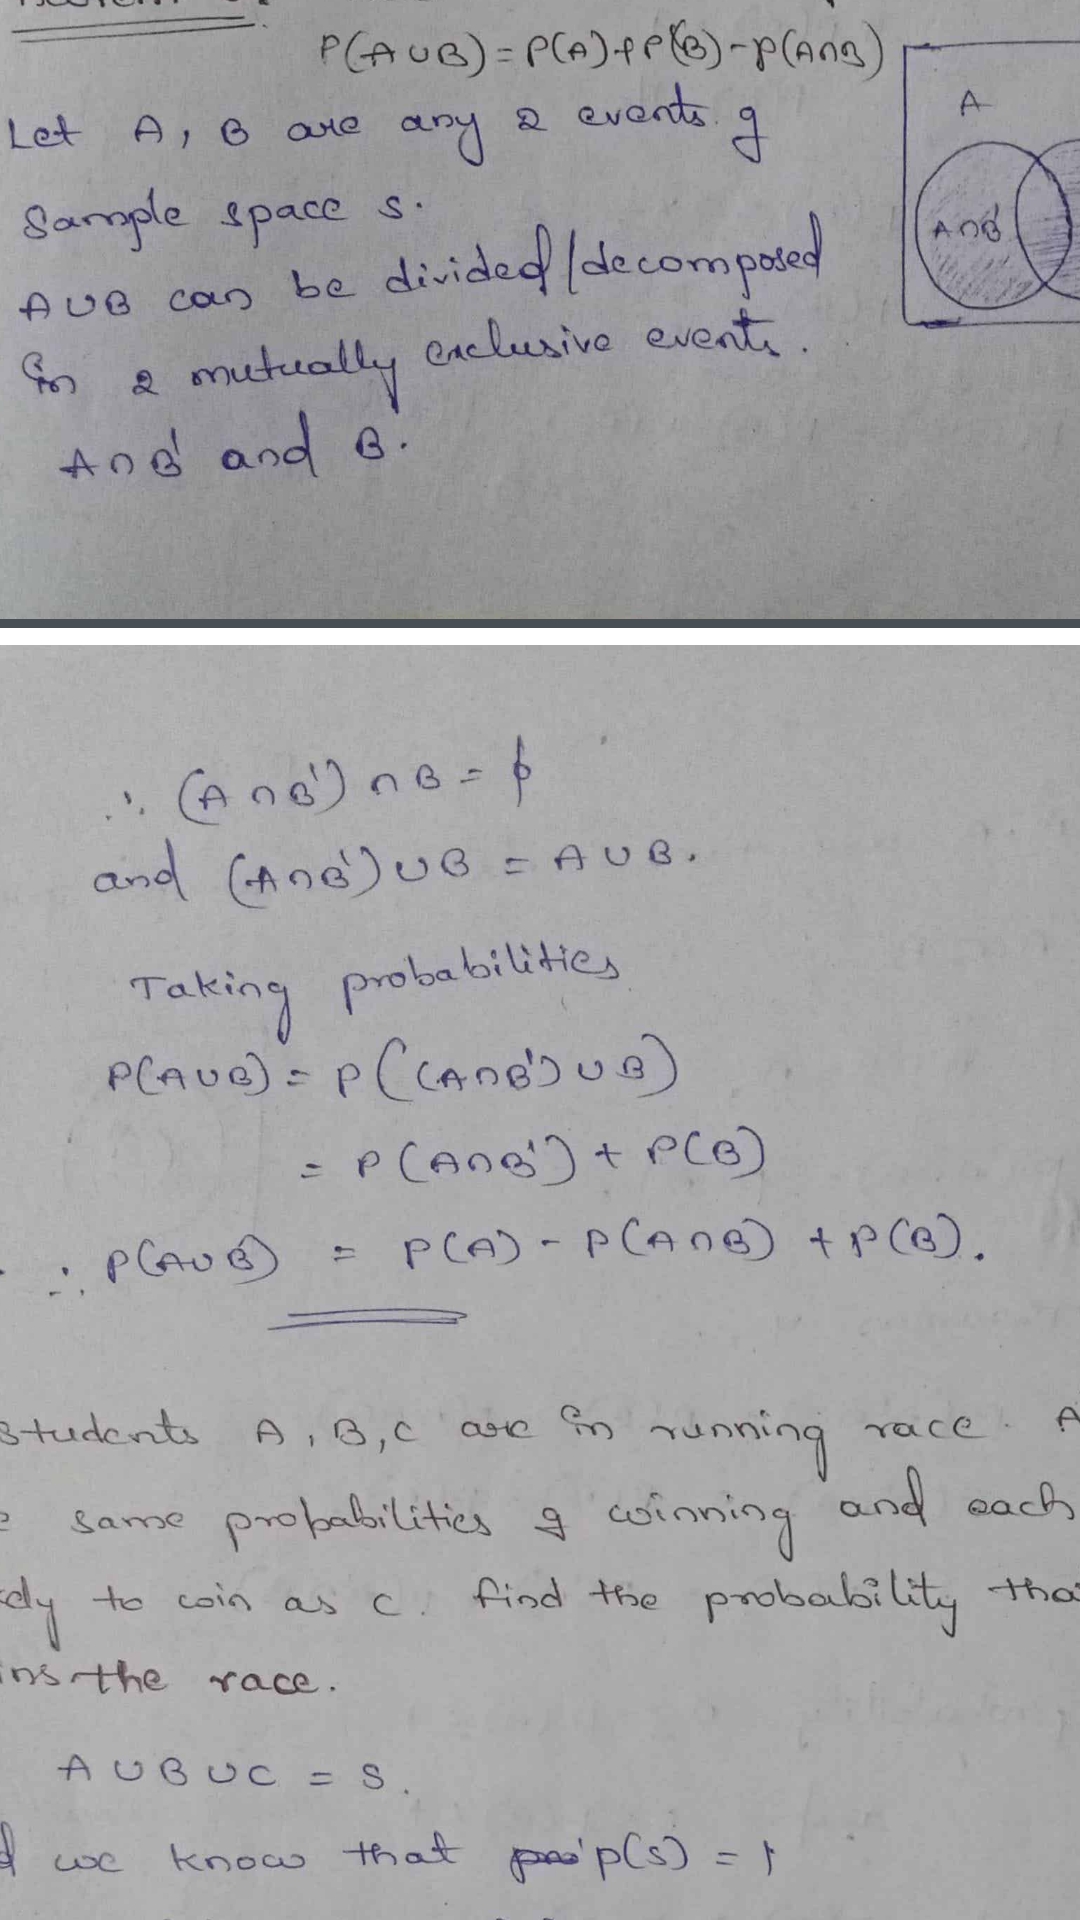 P(A∪B)=P(A)+P(B)-P(A∩B)
A
Let A, B are any 2 events of
Sample space S.
A∩B'
A∪B can be divided/decomposed
in 2 mutually exclusive events.
A∩B' and B.
∴ (A∩B')∩B=ϕ
and (A∩B')∪B = A∪B.
Taking probabilities
P(A∪B)= P((A∩B')∪B)
= P(A∩B') + P(B)
∴ P(A∪B) = P(A) - P(A∩B) + P(B).
students A, B, C are in running race. A
same probabilities of winning and each
to win as C. find the probability
the race.
A∪B∪C = S.
we know that P(S) = 1